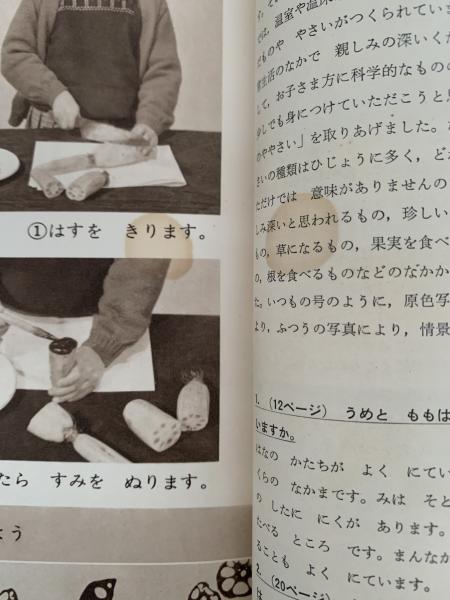 ①はすを　きります。
たら　すみを　ぬります。
よう
は，温室や温床
ものや　やさいがつくられてい
常生活のなかで　親しみの深いくだ
して，お子さま方に科学的なものの
少しでも身につけていただこうと思
のやさい」を取りあげました。
さいの種類はひじょうに多く，ど
ただけでは　意味がありませんの
しみ深いと思われるもの，珍しい
もの，草になるもの，果実を食べ
の，根を食べるものなどのなかか
た。いつもの号のように，原色写
より，ふつうの写真により，情景
1．（12ページ）　うめと　ももは
いますか。
はなの　かたちが　よく　にてい
くらの　なかまです。みは　そと
の　したに　にくが　あります。
たべる　ところ　です。まんなか
ることも　よく　にています。
2．（20ページ）
は